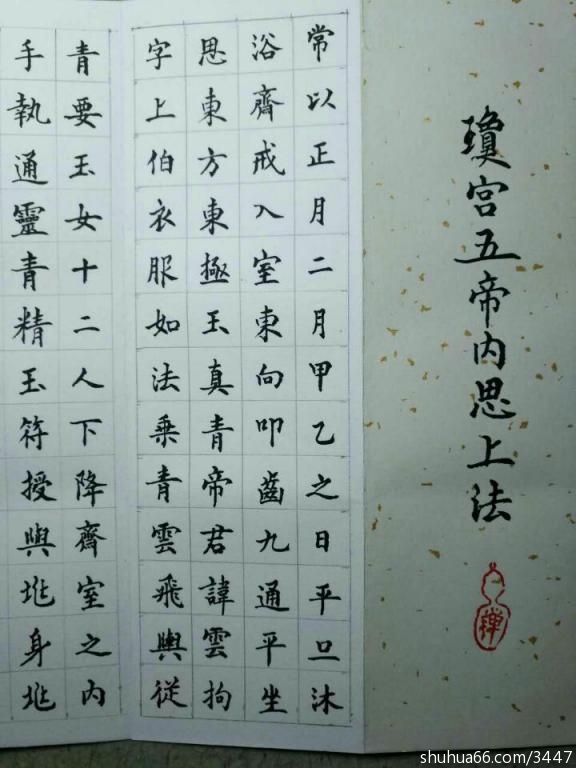 瓊宫五帝内思上法
常以正月二月甲乙之日平旦沐
浴齊戒入室東向叩齒九通平坐
思東方東極玉真青帝君諱雲拘
字上伯衣服如法乗青雲飛輿従
青要玉女十二人下降齊室之内
手執通靈青精玉符授與兆身兆
shuhua66.com/3447